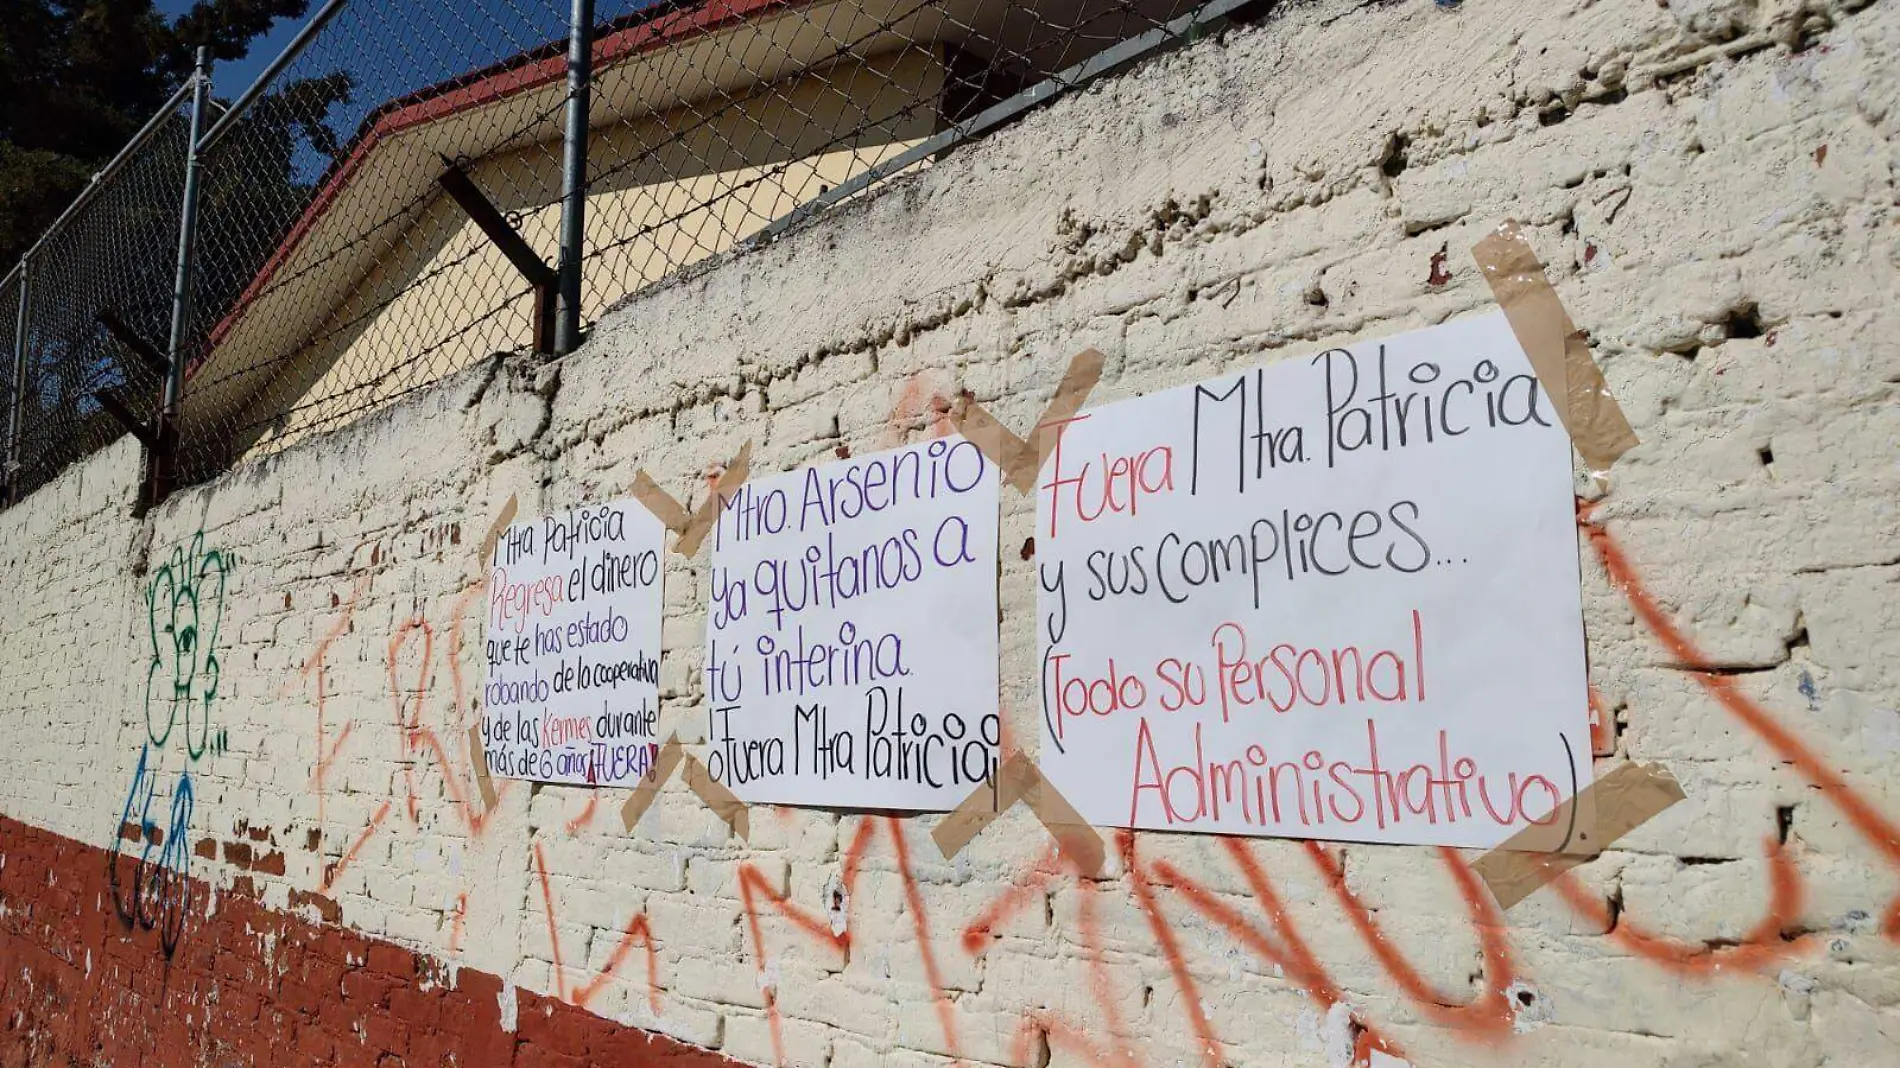 Mtra Patricia
Regresa el dinero
que te has estado
robando de la cooperativa
y de las Kermes durante
más de 6 años ¡FUERA!
Mtro. Arsenio
ya quitanos a
tú interina.
¡Fuera Mtra Patricia¡
Fuera Mtra. Patricia
y sus complices...
(Todo su Personal
Administrativo).